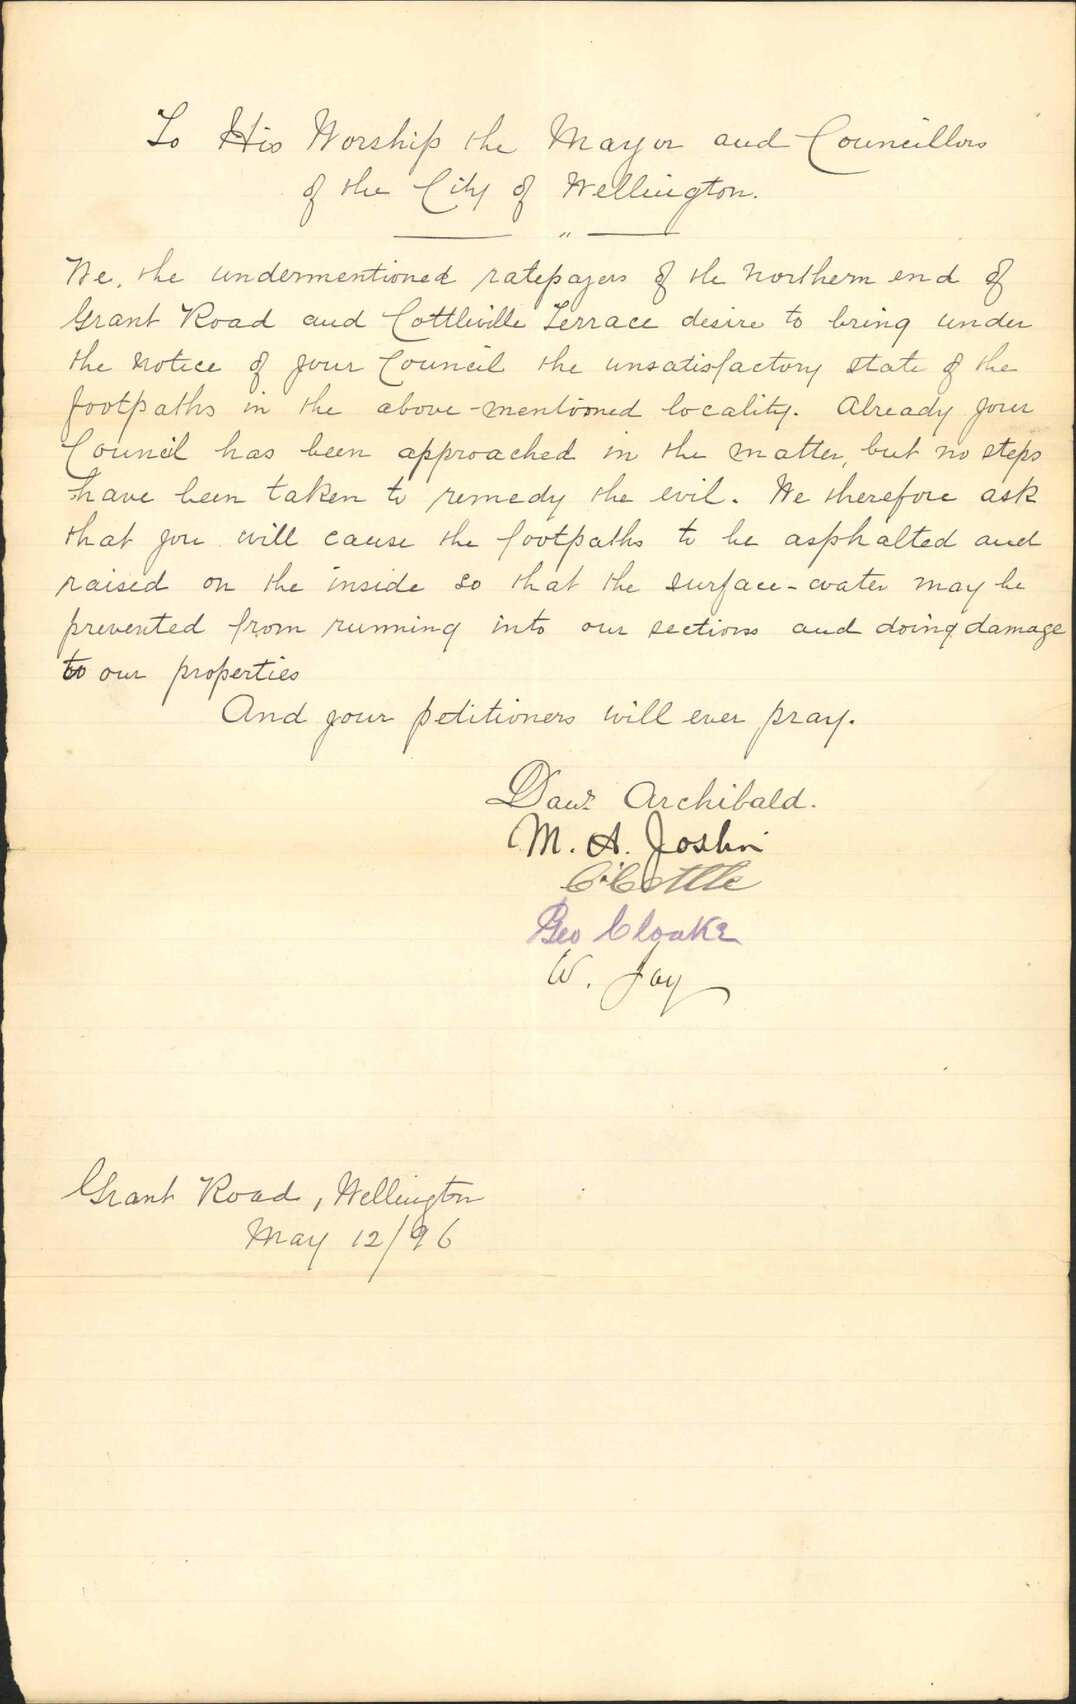 To His Worship the Mayor and Councillors
of the City of Wellington.
We, the undermentioned ratepayers of the northern end of
Grant Road and Cottleville Terrace desire to bring under
the notice of your Council the unsatisfactory state of the
footpaths in the above-mentioned locality. Already your
Council has been approached in the matter, but no steps
have been taken to remedy the evil. We therefore ask
that you will cause the footpaths to be asphalted and
raised on the inside so that the surface-water may be
prevented from running into our sections and doing damage
to our properties
And your petitioners will ever pray.
Archibald.
M. A. Joslin
C. Cottle
Geo Cloake
W. Jay
Grant Road, Wellington
May 12/96